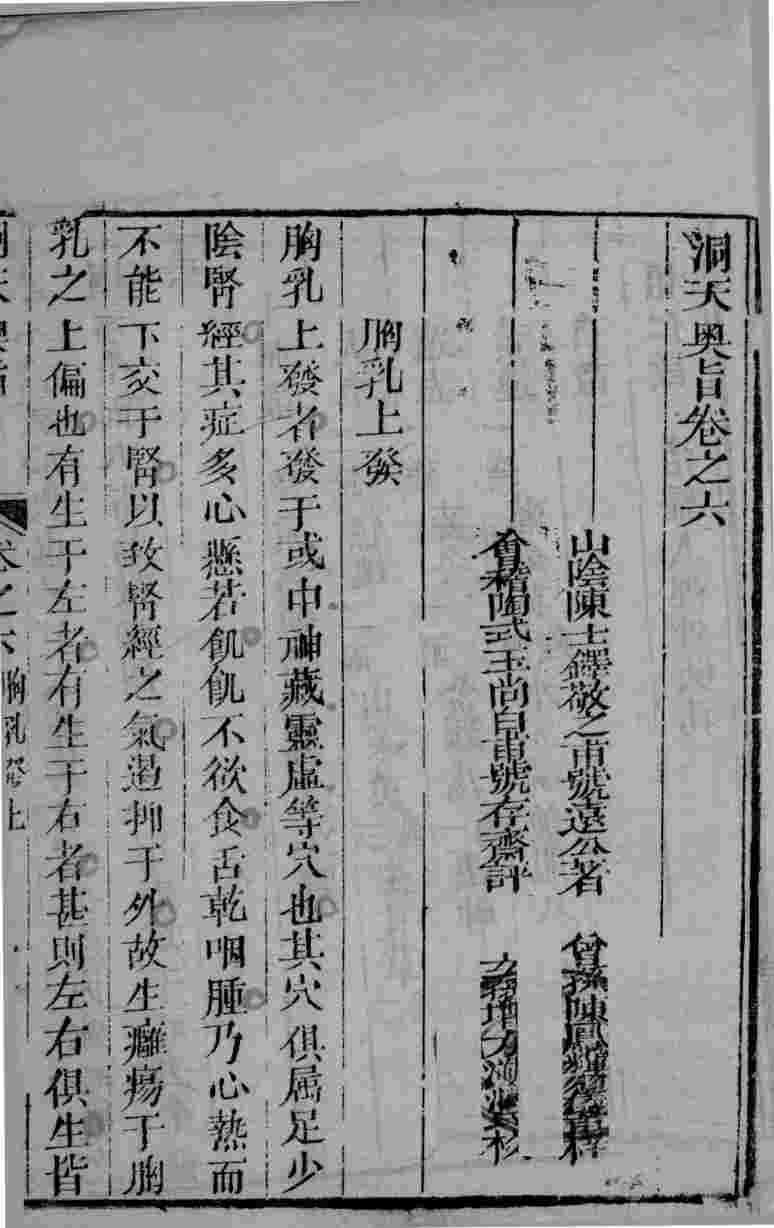 洞天奧旨卷之六
山陰陳士鐸敬之甫號遠公著 曾孫陳鳳輝
會稽陶式玉尚白甫號存齋評
胸乳上發
胸乳上發者發于或中神藏靈虛等穴也其穴俱屬足少
陰腎經其症多心懸若飢飢不欲食舌乾咽腫乃心熱而
不能下交于腎以致腎經之氣遏抑于外故生癰瘍于胸
乳之上偏也有生于左者有生于右者甚則左右俱生皆
洞天奧旨 卷之六 胸乳發上